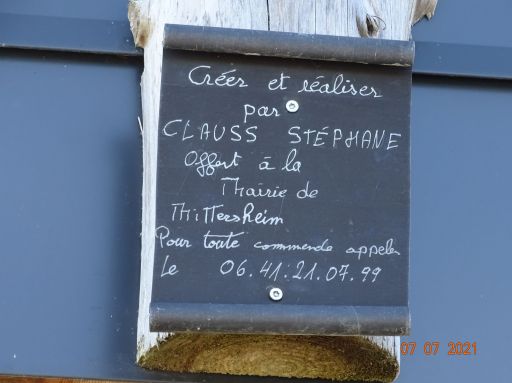 Créer et réaliser
par
CLAUSS STÉPHANE
Offert à la
Mairie de
Mittersheim
Pour toute commende appeler
Le 06.41.21.07.99
07 07 2021